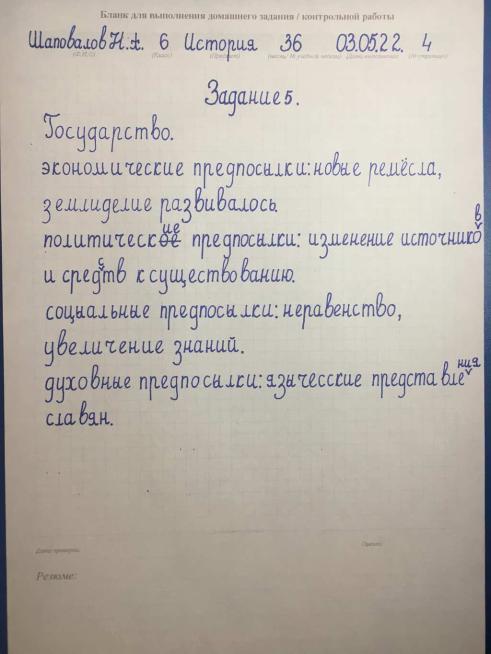 Бланк для выполнения домашнего задания / контрольной работы
Шаповалов Н.А. 6 История 36 03.05.22. 4
(Ф.И.О.) (Класс) (Предмет)
Задание 5.
Государство.
экономические предпосылки: новые ремёсла,
землиделие развивалось.
политические предпосылки: изменение источников
и средств к существованию.
соцыальные предпосылки: неравенство,
увеличение знаний.
духовные предпосылки: язычесские представления
славян.
Дата проверки:
Оценка:
Резюме: